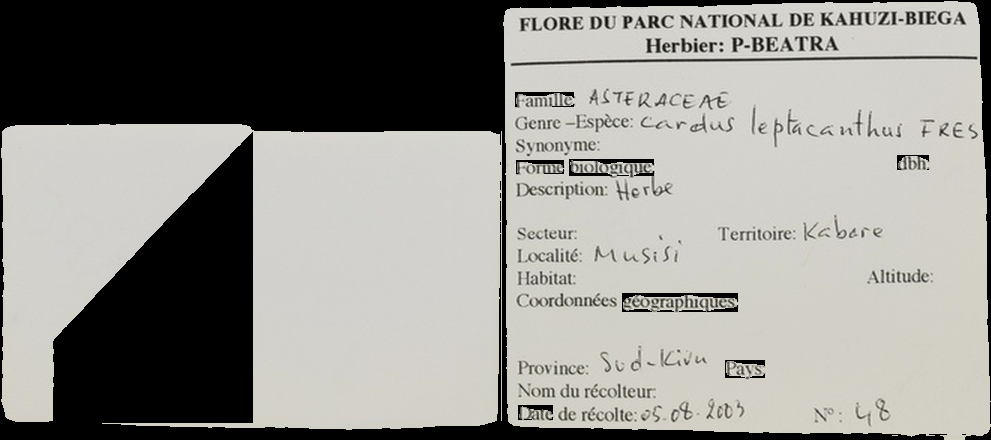 FLORE DU PARC NATIONAL DE KAHUZI-BIEGA
Herbier: P-BEATRA
Famille ASTERACEAE
Genre –Espèce: Cardus leptacanthus FRES
Synonyme:
Forme biologique dbh:
Description: Herbe
Secteur: Territoire: Kabare
Localité: Musisi
Habitat: Altitude:
Coordonnées géographiques
Province: Sud-Kivu Pays
Nom du récolteur:
Date de récolte: 05.08.2003 N°: 48